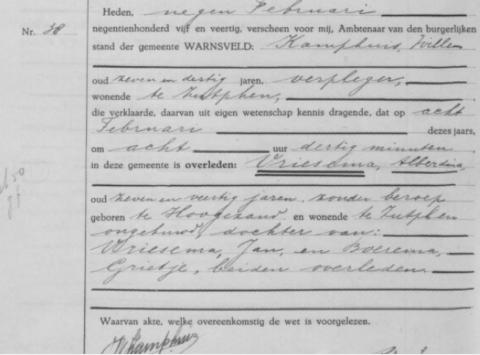 Heden, negen Februari
Nr. 38
negentienhonderd vijf en veertig, verscheen voor mij, Ambtenaar van den burgerlijken
stand der gemeente WARNSVELD: Kamphuis, Willem
oud zeven en dertig jaren, verpleger,
wonende te Zutphen,
die verklaarde, daarvan uit eigen wetenschap kennis dragende, dat op acht
Februari dezes jaars,
om acht uur dertig minuten
in deze gemeente is overleden: Vriesema, Albertina,
oud zeven en veertig jaren, zonder beroep
geboren te Hoogezand en wonende te Zutphen
ongehuwd, dochter van:
Vriesema, Jan, en Boerema,
Grietje, beiden overleden.
Waarvan akte, welke overeenkomstig de wet is voorgelezen.
WKamphuis